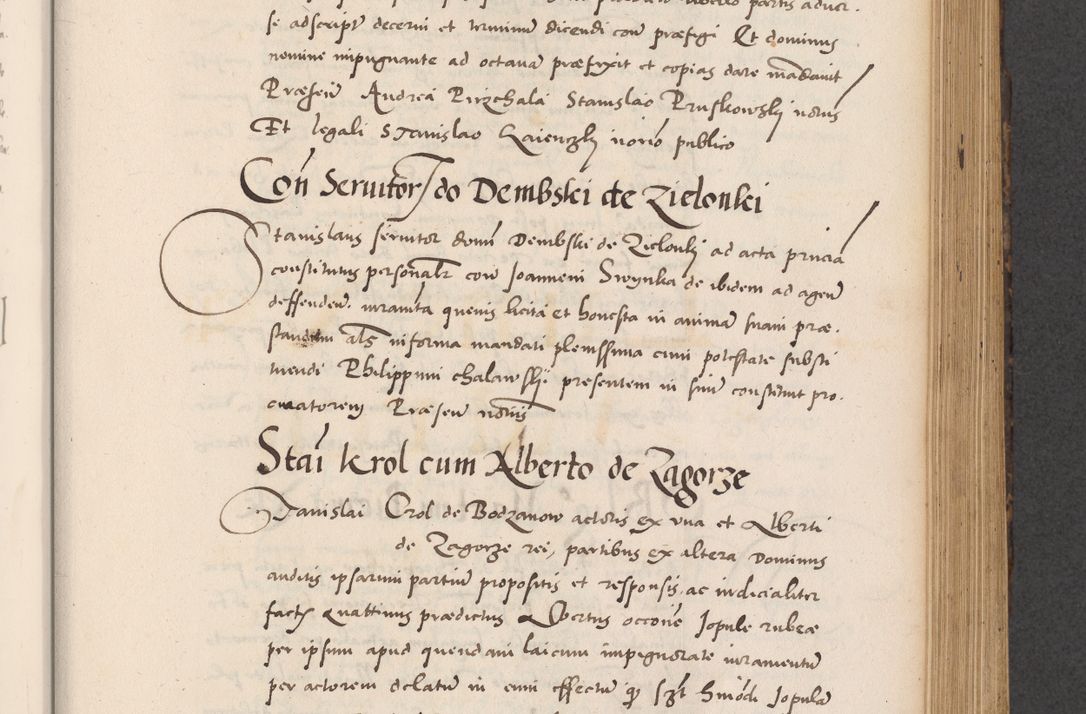 se adscript decerni et terminu dicendi con præfigi Et dominus
nemine impugnante ad octaua præfixit et copias dare mandauit
Præsen Andrea Pirzchala Stanislao Prusskowskj notus
Et legali Stanislao notrio publico
Con Seruitor do Dembski de Zielonki
Stanislaus seruitor domi Dembski de Zielonkj ad acta prncia
constitutus personalr cow Joannem Swynka de ibidem ad agen
deffenden. iuramta queuis licita et honesta in animam suam præ.
standum als in forma mandati plenissima cum potestate substi
tuendi Philippum chalawskij presentem in suu constituit pro.
curatorem Præsen notus
Stai Krol cum Alberto de Zagorze
Stanislai Crol de Bodzanow actoris ex vna et Alberti
de Zagorze rei, partibus ex altera Dominus
auditis ipsarum partiu propositis et responsis, ac iudicialiter
fact quattinus prædictus Albertus occone Jopule rubeæ
per ipsum apud quendam laicum impignorate iuramentu
per actorem delatum in eum effectu hmodi Jopula